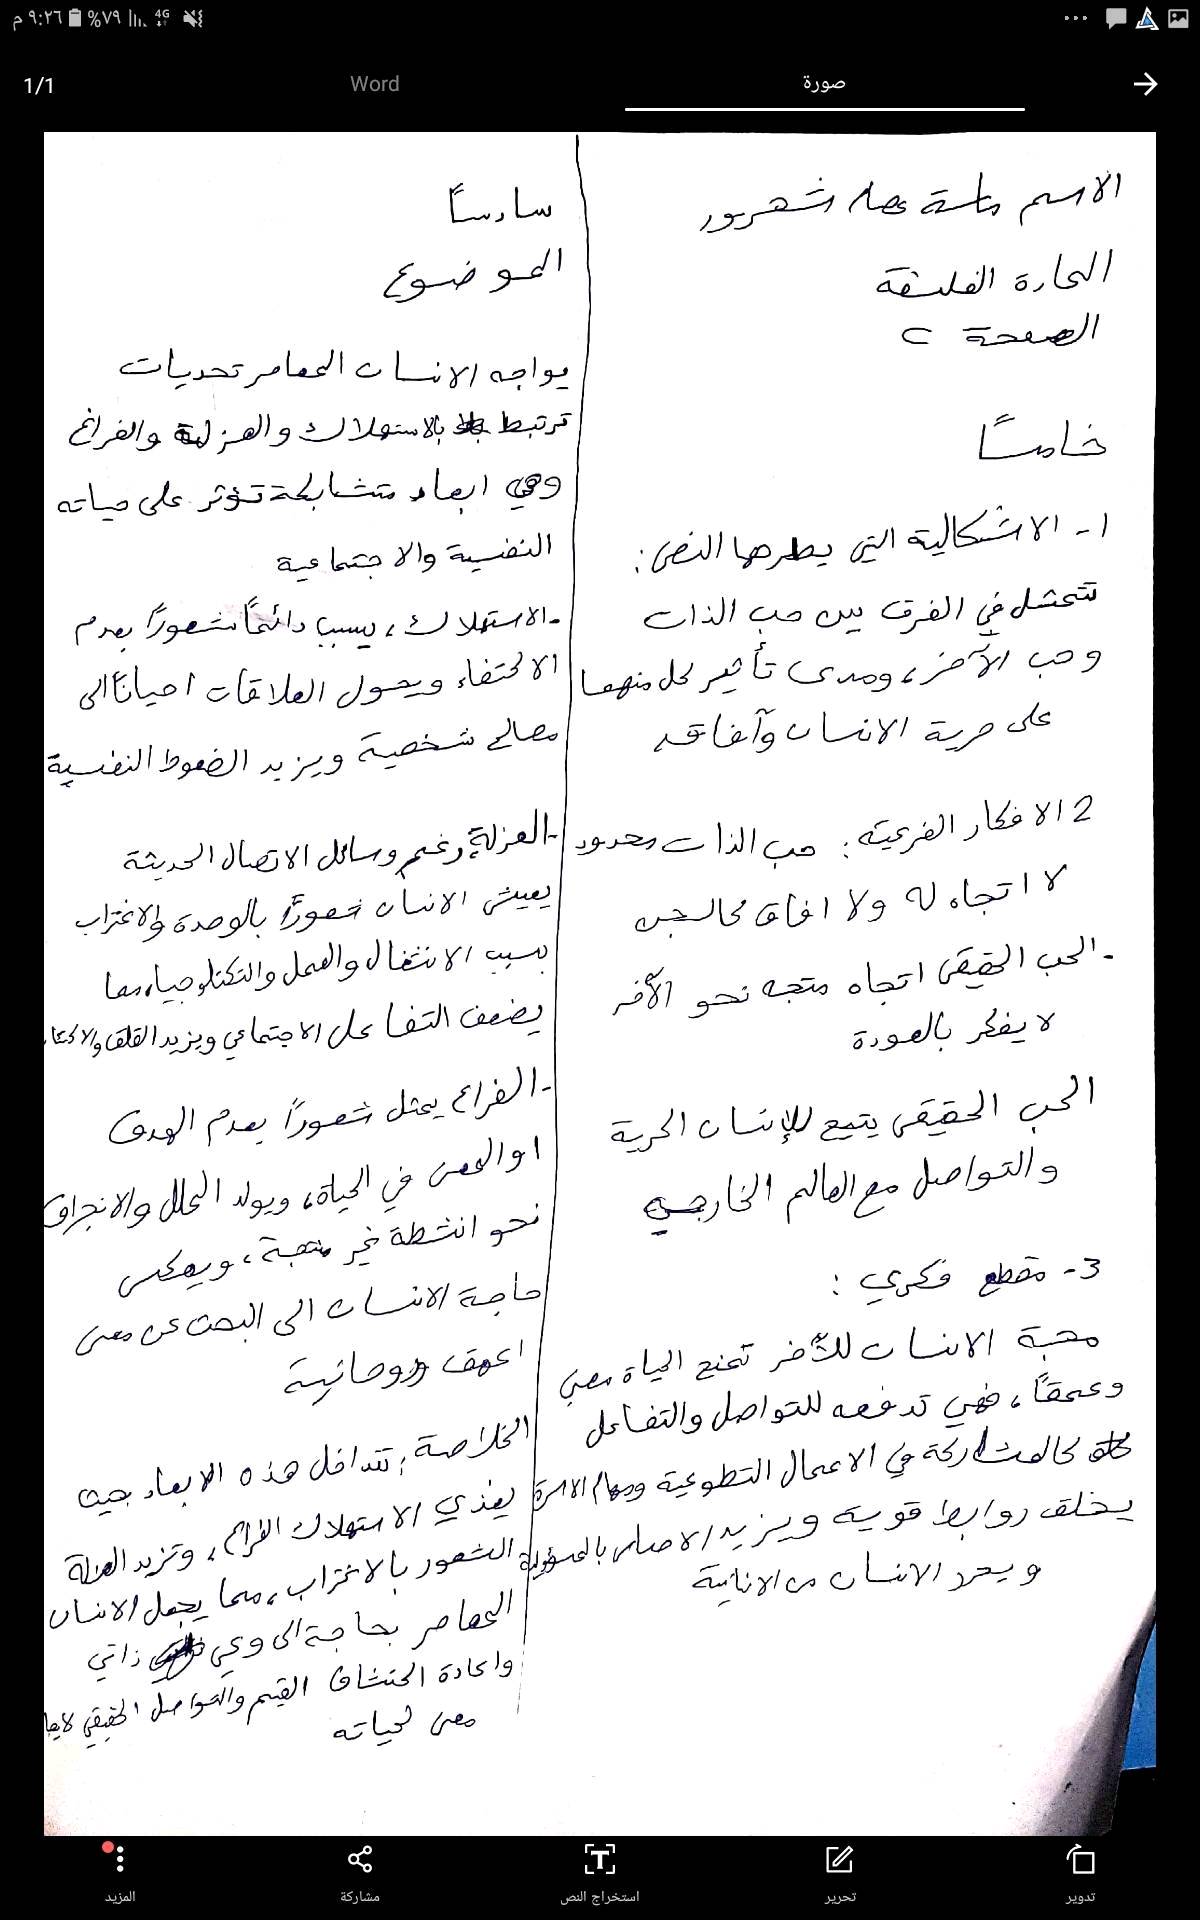 ٩:٢٦ م
%٧٩
4G
1/1
Word
صورة
الاسم ماسة عصام شهرور
المادة الفلسفة
الصفحة ٢
خامساً
١- الاشكالية التي يطرحها النص:
تتمثل في الفرق بين حب الذات
وحب الآخر، ومدى تأثير كل منهما
على حرية الانسان وآفاقه
2 الافكار الفرعية: حب الذات محدود
لا اتجاه له ولا افاق كالسجن
- الحب الحقيقي اتجاه متجه نحو الآخر
لا يفكر بالعودة
الحب الحقيقي يتيح للإنسان الحرية
والتواصل مع العالم الخارجي
3- مقطع فكري:
محبة الانسان للآخر تمنح الحياة معنى
وعمقاً، فهي تدفعه للتواصل والتفاعل
كالمشاركة في الاعمال التطوعية ومهام الاسرة
يخلق روابط قوية ويزيد الاحساس بالمسؤولية
ويحرر الانسان من الانانية
سادساً
الموضوع
يواجه الانسان المعاصر تحديات
ترتبط بالاستهلاك والعزلة والفراغ
وهي ابعاد متشابكة تؤثر على حياته
النفسية والاجتماعية
- الاستهلاك، يسبب دائماً شعوراً بعدم
الاكتفاء ويحول العلاقات احياناً الى
مصالح شخصية ويزيد الضغوط النفسية
- العزلة، رغم وسائل الاتصال الحديثة
يعيش الانسان شعوراً بالوحدة والاغتراب
بسبب الانشغال والعمل والتكنلوجيا، مما
يضعف التفاعل الاجتماعي ويزيد القلق والاكتئا
- الفراغ يمثل شعوراً بعدم الهدف
او المعنى في الحياة، ويولد الملل والانجراف
نحو انشطة غير منتجة، ويعكس
حاجة الانسان الى البحث عن معنى
اعمق وروحانية
الخلاصة: تتداخل هذه الابعاد حيث
يغذي الاستهلاك الفراغ، وتزيد العزلة
الشعور بالاغتراب، مما يجعل الانسان
المعاصر بحاجة الى وعي ذاتي
واعادة اكتشاف القيم والتواصل الحقيقي لايجا
معنى لحياته
تدوير
تحرير
استخراج النص
مشاركة
المزيد